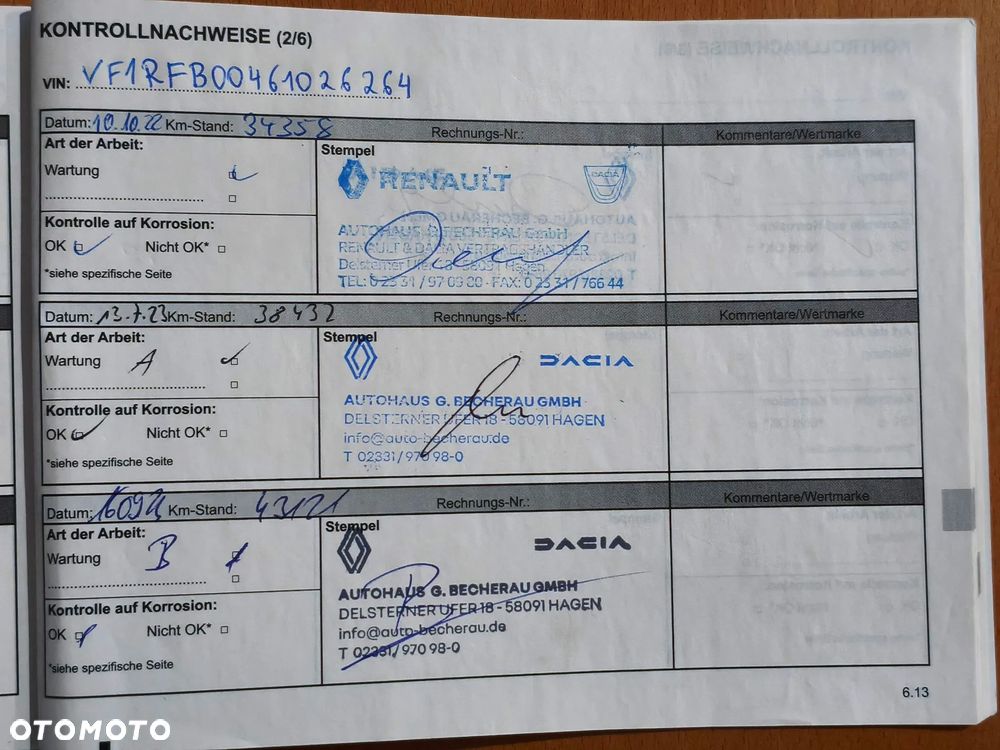 KONTROLLNACHWEISE (2/6)
VIN: VF1RFB00461026264
Datum: 10.10.22 Km-Stand: 34358 Rechnungs-Nr.: Kommentare/Wertmarke
Art der Arbeit: Stempel
Wartung
RENAULT DACIA
Kontrolle auf Korrosion:
AUTOHAUS G. BECHERAU GmbH
OK Nicht OK*
RENAULT & DACIA VERTRAGSHÄNDLER
Delsterner Ufer 18 - 58091 Hagen
*siehe spezifische Seite
TEL: 0 23 31 / 97 09 80 - FAX: 0 23 31 / 766 44
Datum: 13.7.23 Km-Stand: 38432 Rechnungs-Nr.: Kommentare/Wertmarke
Art der Arbeit: Stempel
Wartung A
DACIA
Kontrolle auf Korrosion:
AUTOHAUS G. BECHERAU GMBH
DELSTERNER UFER 18 - 58091 HAGEN
OK Nicht OK*
info@auto-becherau.de
*siehe spezifische Seite
T 02331 / 970 98-0
Datum: Km-Stand: 43121 Rechnungs-Nr.: Kommentare/Wertmarke
Art der Arbeit: Stempel
Wartung B
DACIA
AUTOHAUS G. BECHERAU GMBH
Kontrolle auf Korrosion:
DELSTERNER UFER 18 - 58091 HAGEN
OK Nicht OK*
info@auto-becherau.de
T 02331 / 970 98-0
*siehe spezifische Seite
6.13
OTOMOTO